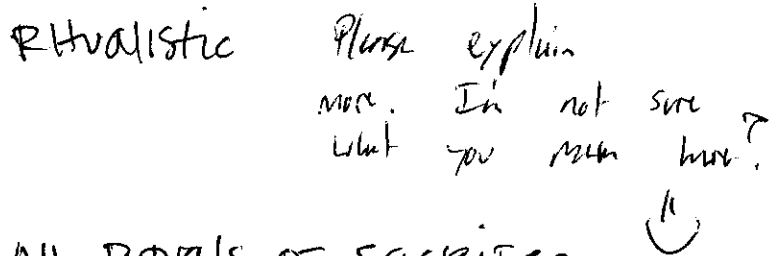 Ritualistic Please explain
more. I'm not sure
what you mean here?
All of